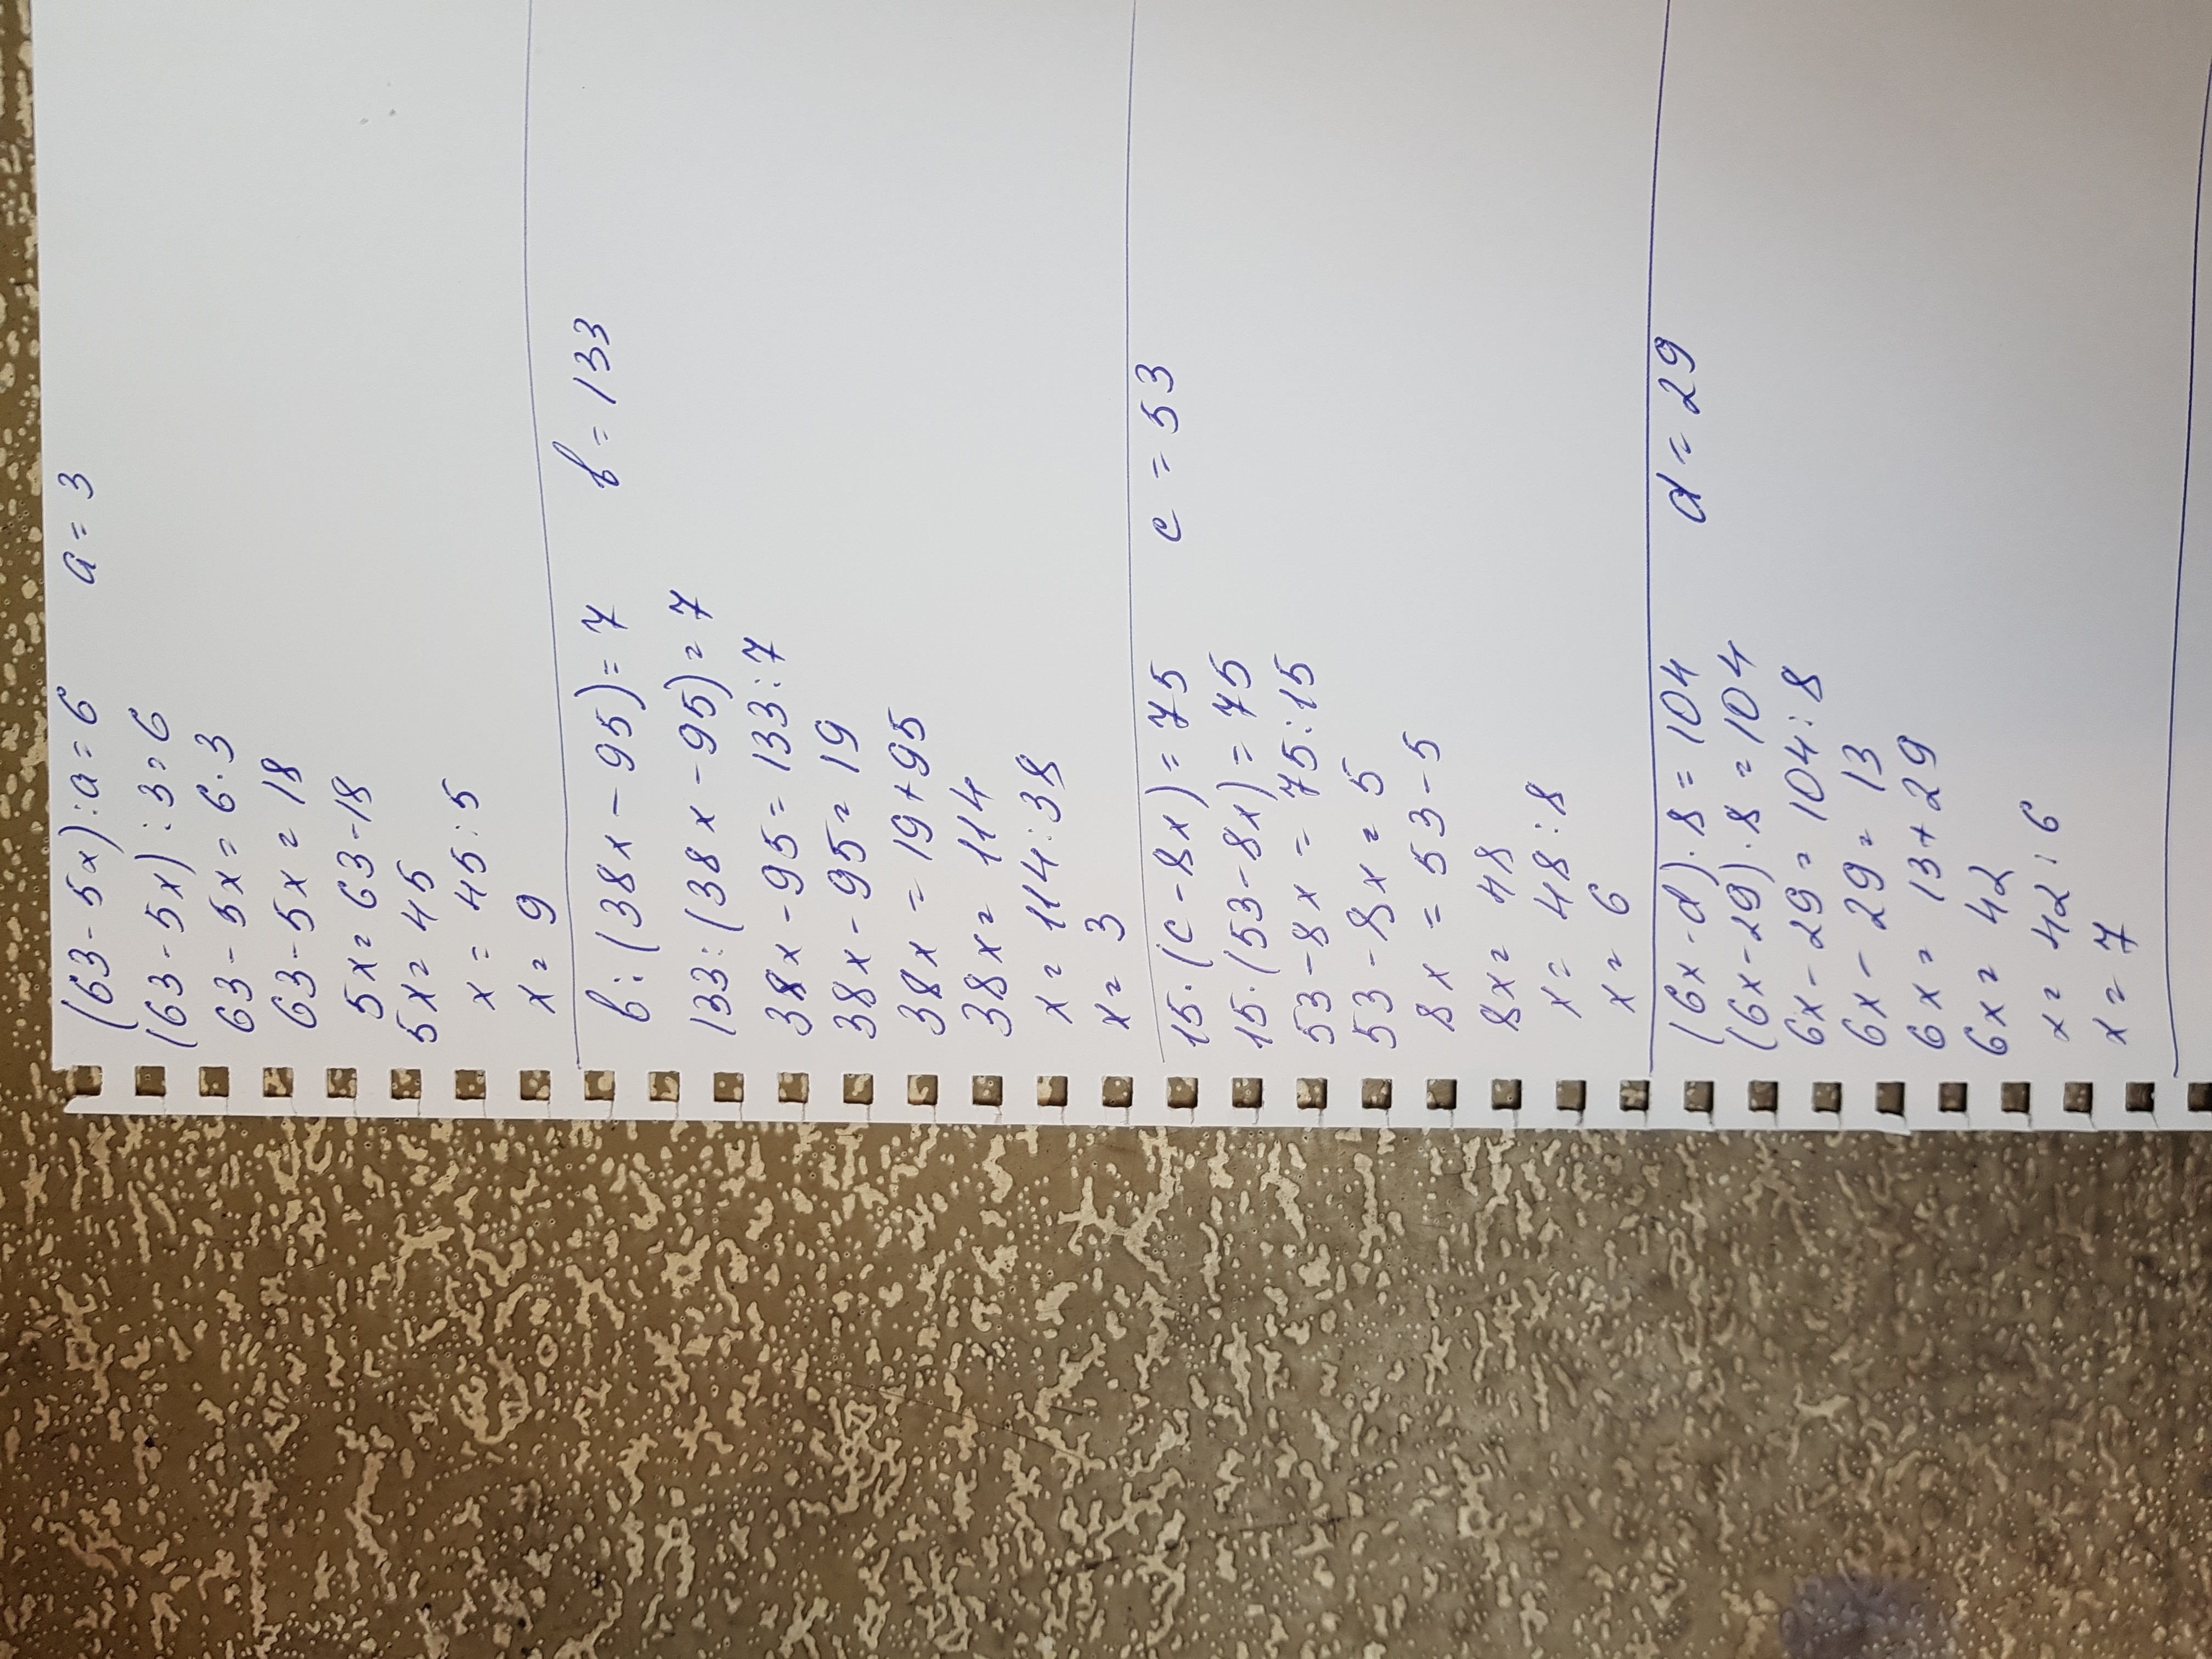 (63-5x):a=6 a=3
(63-5x):3=6
63-5x=6·3
63-5x=18
5x=63-18
5x=45
x=45:5
x=9
b:(38x-95)=7 b=133
133:(38x-95)=7
38x-95=133:7
38x-95=19
38x=19+95
38x=114
x=114:38
x=3
15·(c-8x)=75 c=53
15·(53-8x)=75
53-8x=75:15
53-8x=5
8x=53-5
8x=48
x=48:8
x=6
(6x-d)·8=104 d=29
(6x-29)·8=104
6x-29=104:8
6x-29=13
6x=13+29
6x=42
x=42:6
x=7